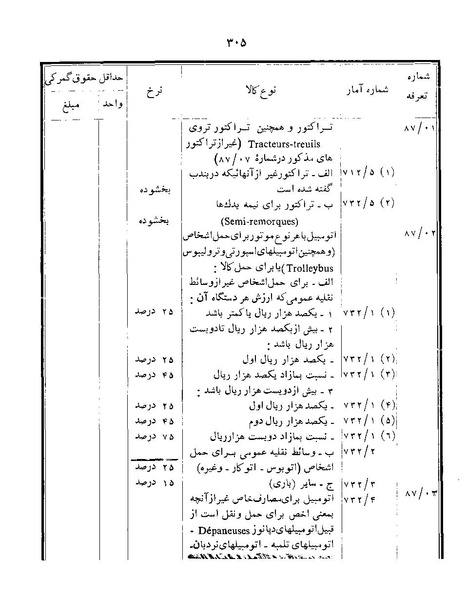 ۳۰۵
شماره تعرفه | شماره آمار | نوع کالا | نرخ | حداقل حقوق گمرکی
واحد | مبلغ
۸۷/۰۱ | تراکتور و همچنین تراکتور تروی
Tracteurs-treuils (غیر از تراکتور
های مذکور در شمارهٔ ۸۷/۰۷)
(۱) ۷۱۲/۵ | الف - تراکتور غیر از آنهائیکه در بند ب
گفته شده است | بخشوده
(۲) ۷۳۲/۵ | ب - تراکتور برای نیمه یدک‌ها
(Semi-remorques) | بخشوده
۸۷/۰۲ | اتومبیل با هر نوع موتور برای حمل اشخاص
(و همچنین اتومبیلهای اسپورتی و ترولیبوس
Trolleybus) یا برای حمل کالا :
الف - برای حمل اشخاص غیر از وسائط
نقلیه عمومی که ارزش هر دستگاه آن :
(۱) ۷۳۲/۱ | ۱ - یکصد هزار ریال یا کمتر باشد | ۲۵ درصد
۲ - بیش از یکصد هزار ریال تا دویست
هزار ریال باشد :
(۲) ۷۳۲/۱ | - یکصد هزار ریال اول | ۲۵ درصد
(۳) ۷۳۲/۱ | - نسبت بمازاد یکصد هزار ریال | ۴۵ درصد
۳ - بیش از دویست هزار ریال باشد :
(۴) ۷۳۲/۱ | - یکصد هزار ریال اول | ۲۵ درصد
(۵) ۷۳۲/۱ | - یکصد هزار ریال دوم | ۴۵ درصد
(۶) ۷۳۲/۱ | - نسبت بمازاد دویست هزار ریال | ۷۵ درصد
۷۳۲/۲ | ب - وسائط نقلیه عمومی برای حمل
اشخاص (اتوبوس - اتوکار - وغیره) | ۲۵ درصد
۷۳۲/۳ | ج - سایر (باری) | ۱۵ درصد
۸۷/۰۳ | ۷۳۲/۴ | اتومبیل برای مصارف خاص غیر از آنچه
بمعنی اخص برای حمل و نقل است از
قبیل اتومبیلهای دپانوز Dépaneuses -
اتومبیلهای تلمبه - اتومبیلهای نردبان-